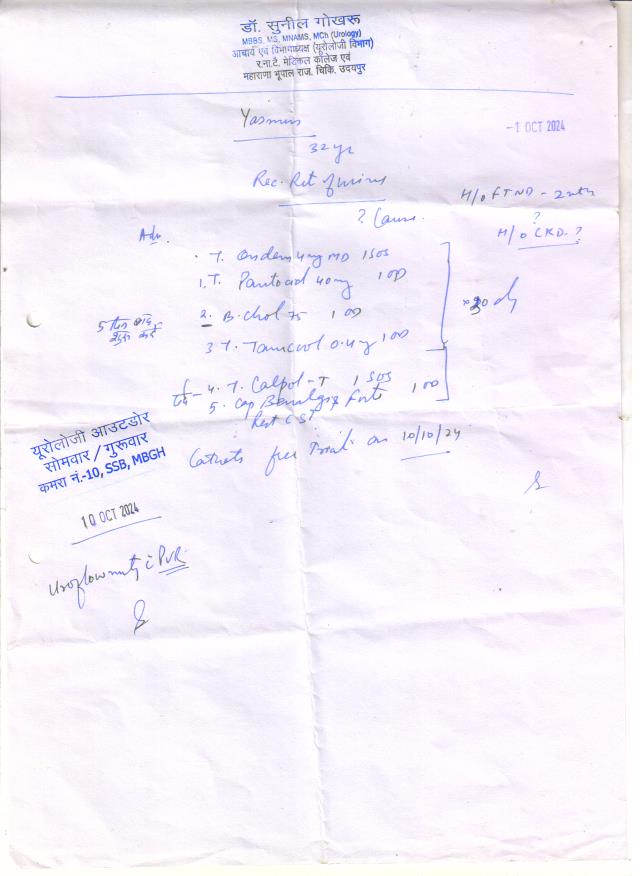 डॉ. सुनील गोखरू
MBBS, MS, MNAMS, MCh (Urology)
आचार्य एवं विभागाध्यक्ष (यूरोलोजी विभाग)
र.ना.टै. मेडिकल कॉलेज एवं
महाराणा भूपाल राज. चिकि. उदयपुर
Yasmin
- 1 OCT 2024
32 yr
Rec. Ret of urine
H/o FTND - 2
? Cause.
?
H/o CKD. ?
Adv.
T. Ondem 4mg MD 1 SOS
1. T. Pantocid 40mg 1 OD
2. B-chol 75 1 OD
5 दिन बाद
शुरू करें
3 T. 0.4mg 1 OD
4. T. Calpol-T 1 SOS
5. Cap Forte 1 OD
Rest CST
free Trial on 10/10/24
यूरोलोजी आउटडोर
सोमवार / गुरूवार
कमरा नं.-10, SSB, MBGH
10 OCT 2024
Uroflowmetry c PVR